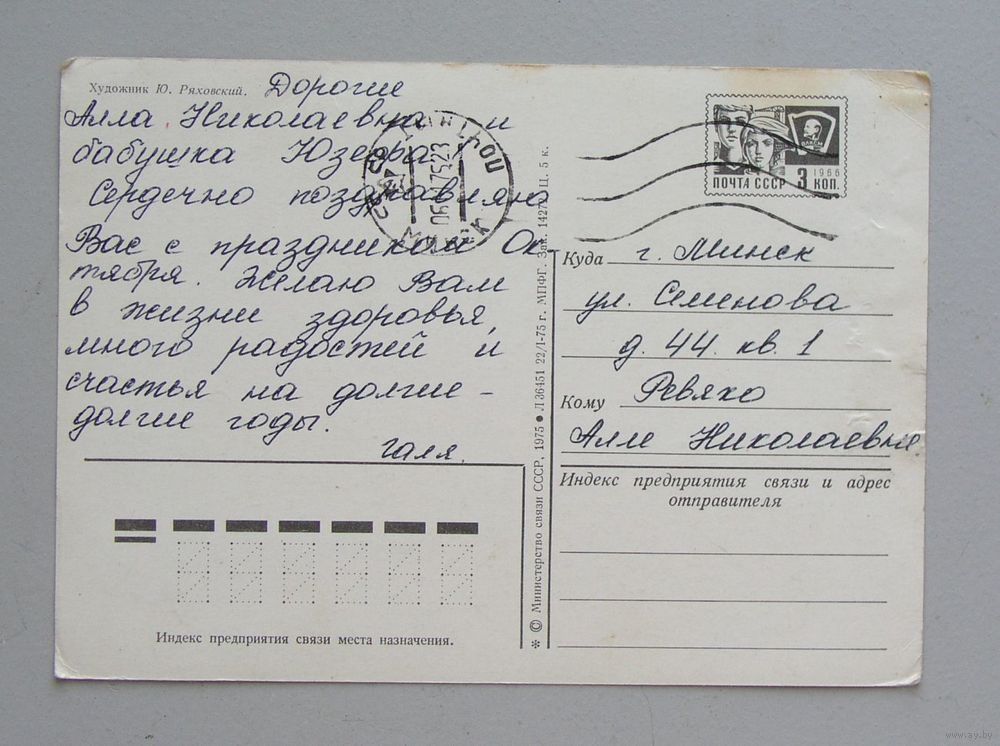 Художник Ю. Ряховский.
Дорогие
Алла Николаевна и
бабушка Юзефа!
Сердечно поздравляю
Вас с праздником Ок-
тября. Желаю Вам
в жизни здоровья,
много радостей и
счастья на долгие -
долгие годы.
Галя.
Индекс предприятия связи места назначения.
* © Министерство связи СССР, 1975 ● Л 36451 22/I-75 г. МПФГ. Зак. Ц. 5 к.
ПОЧТАМТ
МИНСК
ПОЧТА СССР 3 КОП.
1966
ВЛКСМ
Куда г. Минск
ул. Семенова
д. 44. кв. 1
Кому Ревяко
Алле Николаевне
Индекс предприятия связи и адрес
отправителя
www.ay.by